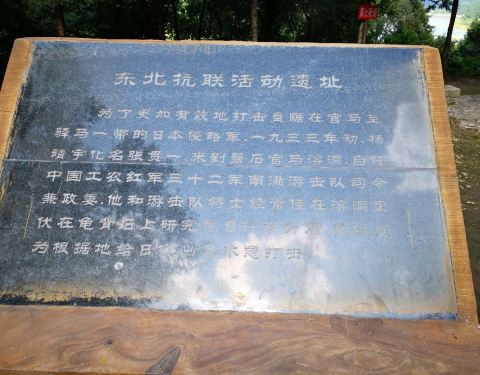 东北抗联活动遗址
为了更加有效地打击盘踞在官马至
驿马一带的日本侵略军，一九三三年初，杨
靖宇化名张贯一，来到磐石官马溶洞，自任
中国工农红军三十二军南满游击队司令
兼政委。他和游击队将士经常住在溶洞里
伏在龟背石上研究
为根据地给日 打击